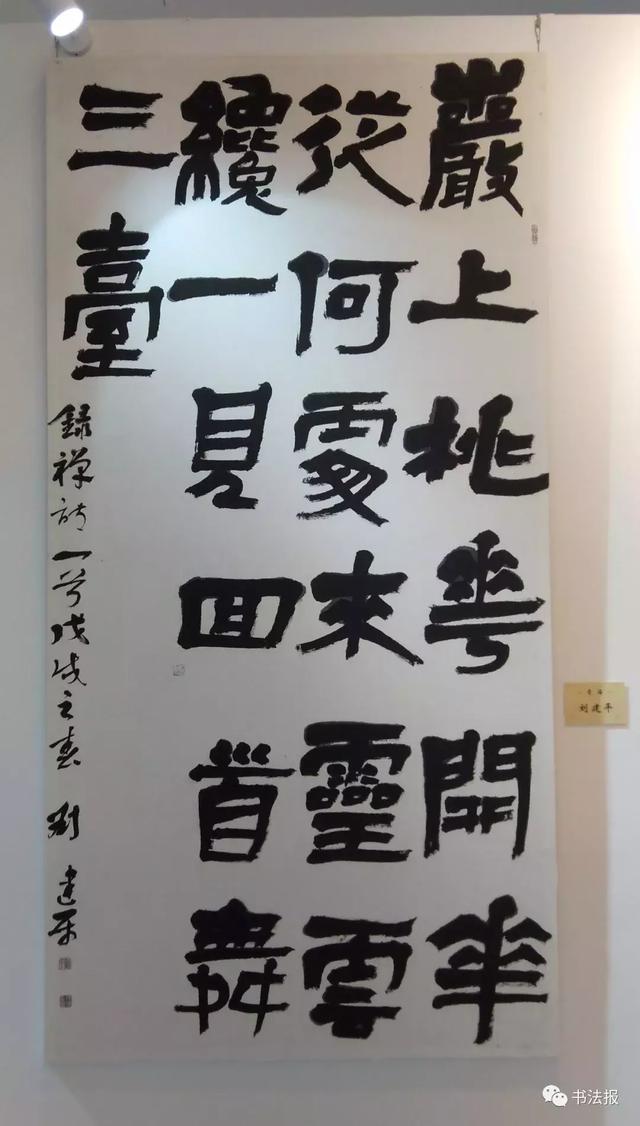 巖上桃華開華
從何處来靈雲
纔一見回首舞
三臺
録禅詩一首戊戌之春 劉建平
青海
刘建平
书法报